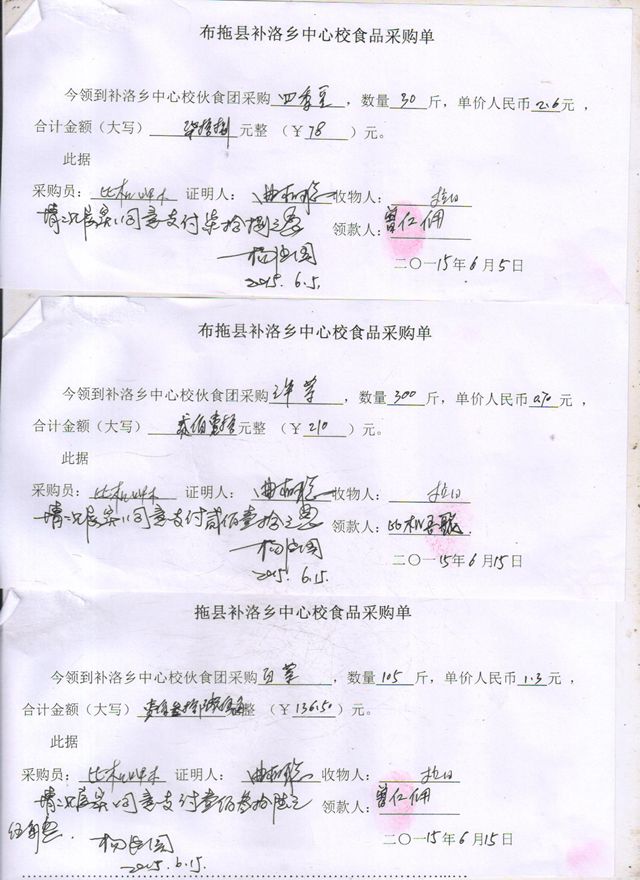 布拖县补洛乡中心校食品采购单
今领到补洛乡中心校伙食团采购 四季豆 ，数量 30 斤，单价人民币 2.6 元，
合计金额（大写） 柒拾捌 元整（￥78）元。
此据
采购员： 证明人： 收物人： 拉日
情况属实，同意支付柒拾捌元整 领款人：曾仁佣
2015.6.5. 二〇一15年6月5日
布拖县补洛乡中心校食品采购单
今领到补洛乡中心校伙食团采购 莲菜 ，数量 300 斤，单价人民币 0.70 元，
合计金额（大写） 贰佰壹拾 元整（￥210）元。
此据
采购员： 证明人： 收物人： 拉日
情况属实，同意支付贰佰壹拾元整 领款人：
2015.6.15. 二〇一15年6月15日
拖县补洛乡中心校食品采购单
今领到补洛乡中心校伙食团采购 白菜 ，数量 105 斤，单价人民币 1.3 元，
合计金额（大写） 整（￥136.50）元。
此据
采购员： 证明人： 收物人： 拉日
情况属实，同意支付壹佰叁拾陆元 领款人：曾仁佣
伍角整.
2015.6.15. 二〇一15年6月15日